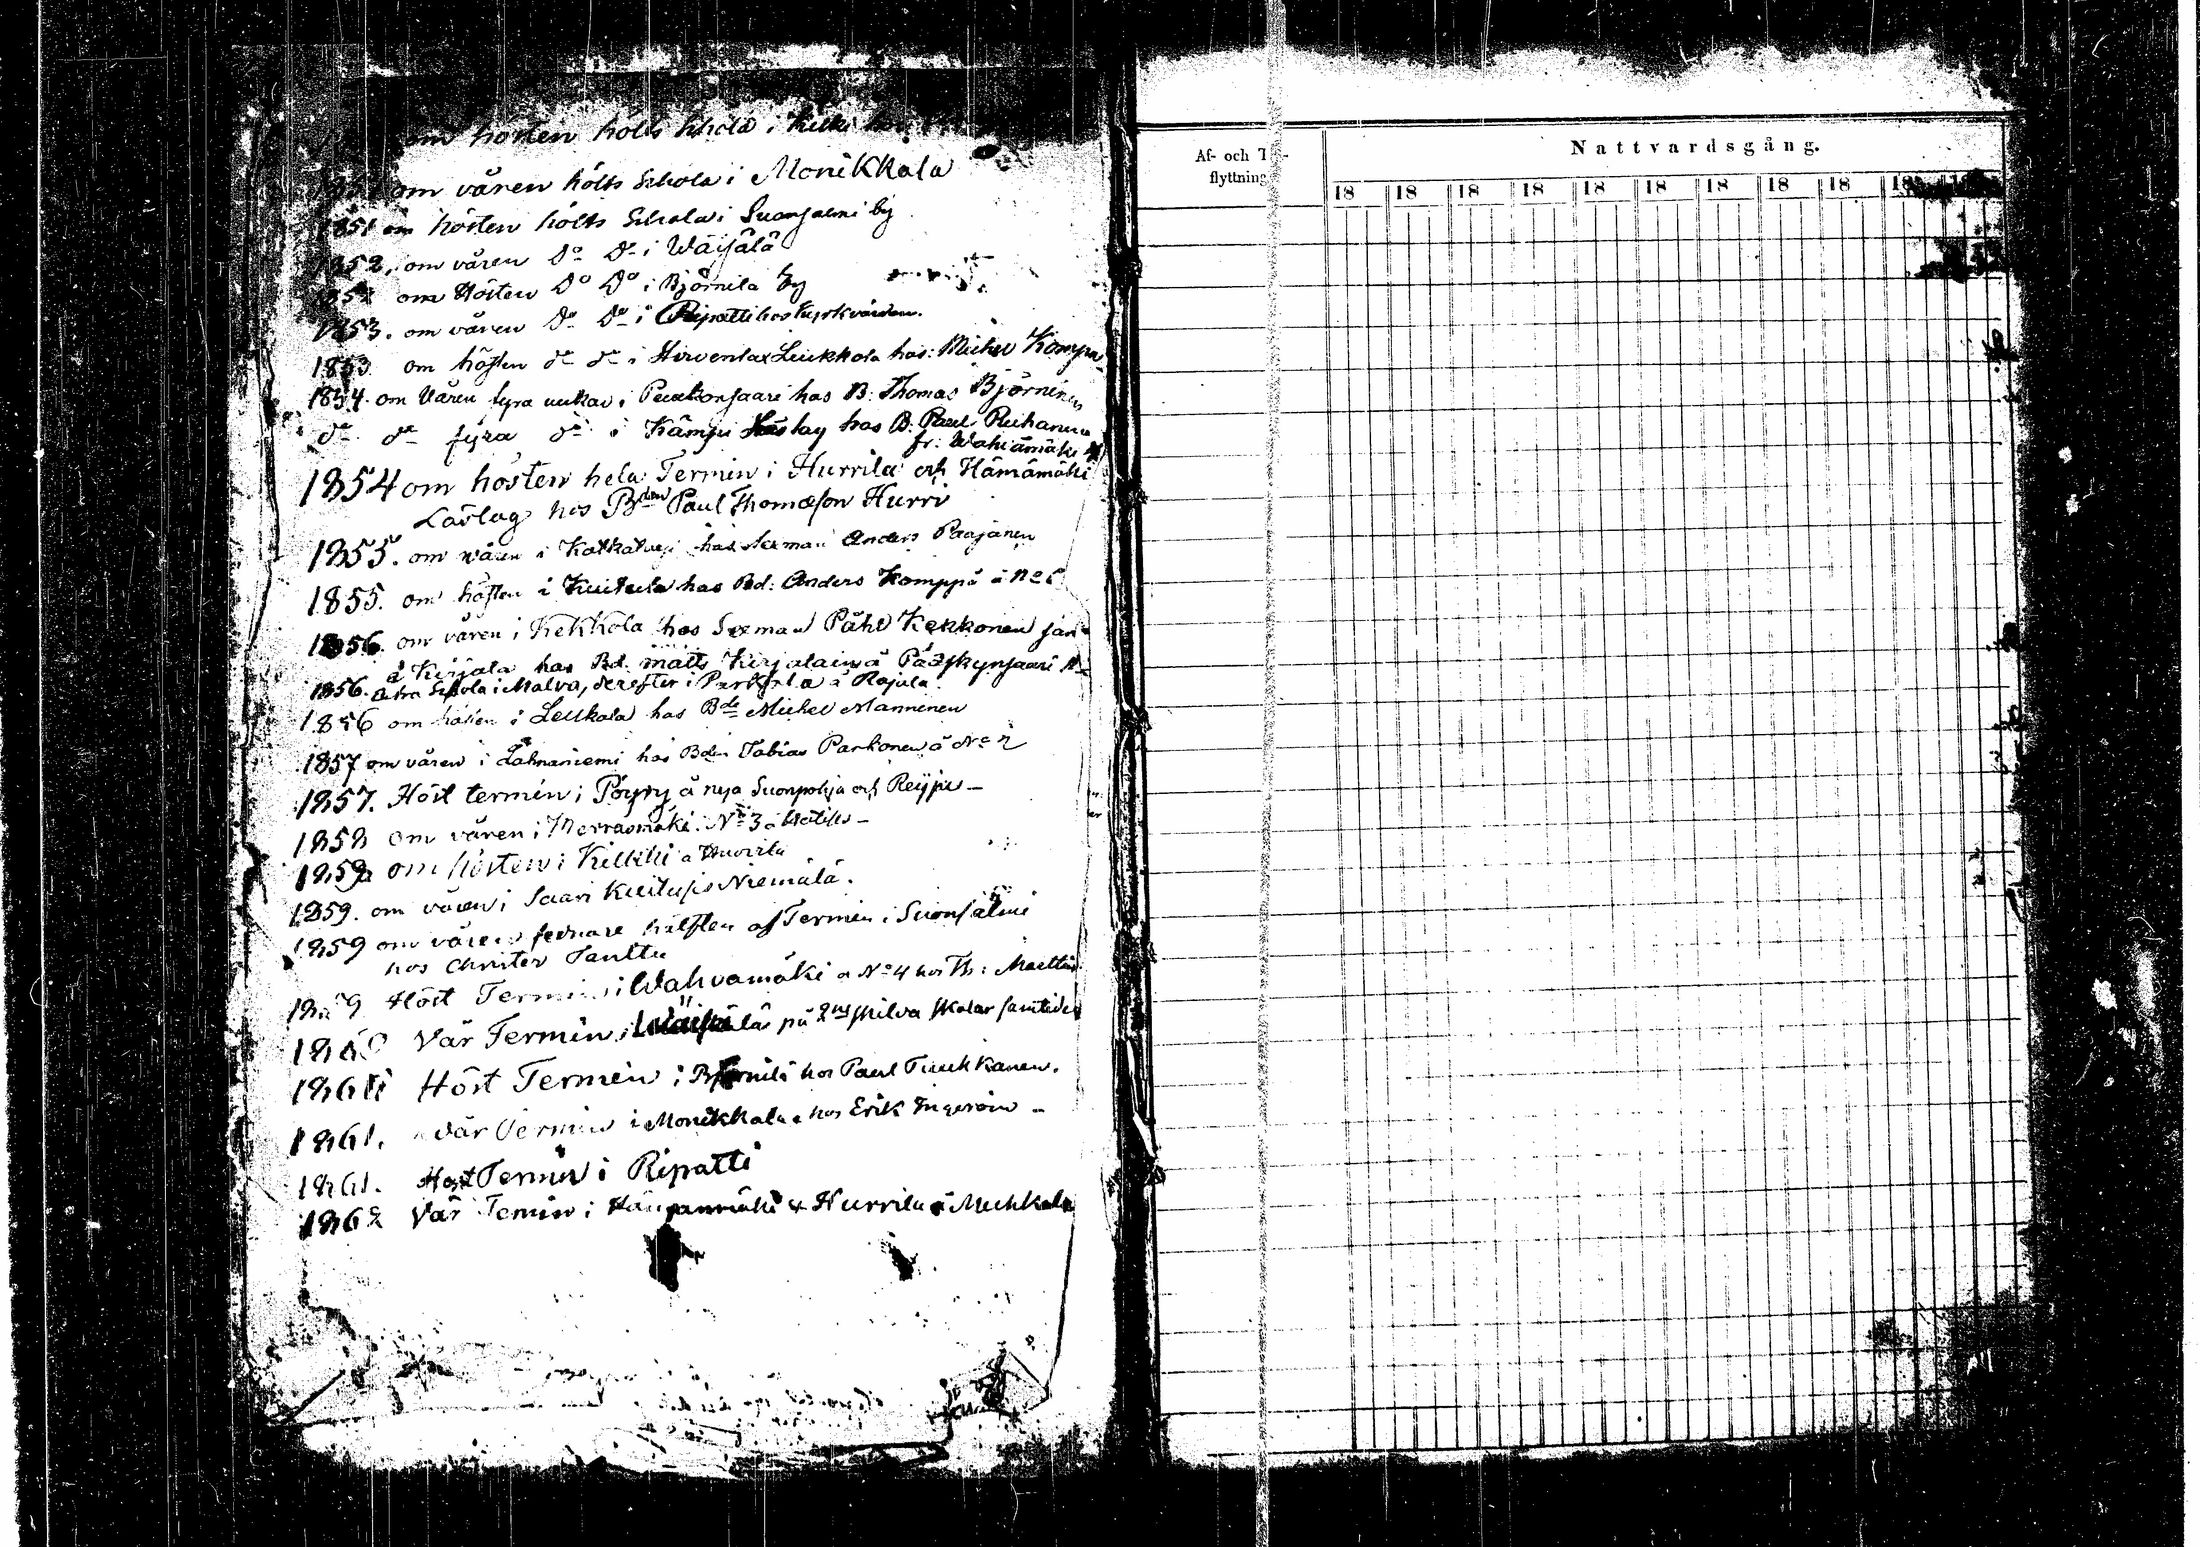 om hösten hölts Schola i Kilki
om våren hölts Schola i Monikkala
1851 om hösten hölts Schola i Suonsalmi by
1852, om våren Do Do i Wäijälä
1852 om Hösten Do Do i Björnila by
1853. om våren Do Do i Ripatti hos kyrkvärden.
1853 om hösten do do i Hirvenlax Leukkola hos: Michel Kompa
1854. om Våren fyra veckor i Peukonsaari hos B: Thomas Björninen
do do fyra do i Kämpi Läslag hos B. Paul Reihanen
fr: Wahvamäki
1854 om hösten hela Termin i Hurrila och Hämämäki
Läslag hos Bden Paul Thomasson Hurri
1855. om våren i hos Anders Paajanen
1855. om hösten i Kuitula hos Bd: Anders Komppa å No
1856. om våren i Kekkola hos Påhl Kekkonen
å Kirjala hos Bd. Matts Kirjalain å Pääskynsaari
1856. Schola i Malva, derefter i Parkkila å Rajula
1856 om hösten i Leukola hos Bde Michel Manninen
1857 om våren i Lahnaniemi hos Bden Tobias Parkonen å No 2
1857. Höst termin i Pöyry å nya Suonpohja och Reijju -
1858 om våren i Merrasmäki No 3 -
1858 om hösten i Kilkki å Hurrila
1859. om våren i Saari Kuitujis Niemälä.
1859 om våren sednare hälften af Termin i Suonsalmi
hos Christer Tanttu
1859 Höst Termin i Wahvamäki å No 4 hos Th: Marttin
1860 Vår Termin i på 2ne skilda skolar samtidi
1860 Höst Termin i Björnilä hos Paul Tiukkanen.
1861. Vår Termin i Monikkala hos Erik Ingeroin -
1861. Höst Termin i Ripatti
1862 Vår Temin i & Hurrila å Mechkala
Af- och T -
flyttning
Nattvardsgång.
18 18 18 18 18 18 18 18 18 18